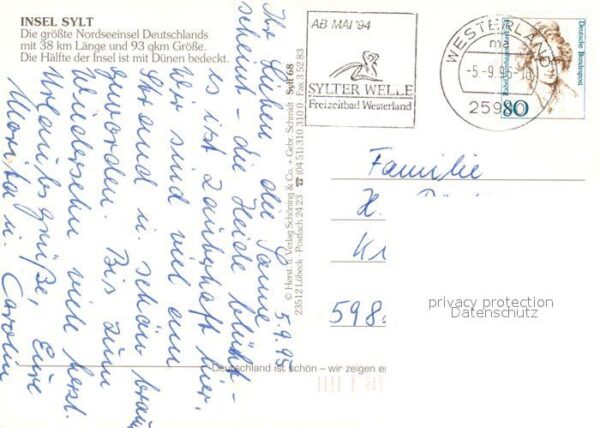 INSEL SYLT
Die größte Nordseeinsel Deutschlands
mit 38 km Länge und 93 qkm Größe.
Die Hälfte der Insel ist mit Dünen bedeckt.
5.9.95
Ihr Lieben, die Sonne
scheint - die Heide blüht -
es ist zauberhaft hier.
Wir sind viel am
Strand u. schön braun
geworden. Bis zum
Wiedersehn viele herzl.
Urlaubsgrüße, Eure
Monika u. Carolin
© Herst. u. Verlag Schöning & Co. + Gebr. Schmidt Sylt 68
23512 Lübeck · Postfach 24 23 ☎ (04 51) 310 310 0 · Fax 3 52 83
AB MAI '94
SYLTER WELLE
Freizeitbad Westerland
WESTERLAND
-5.-9.95-
25980
Deutsche Bundespost
80
Familie
H.
598
privacy protection
Datenschutz
Deutschland ist schön – wir zeigen es